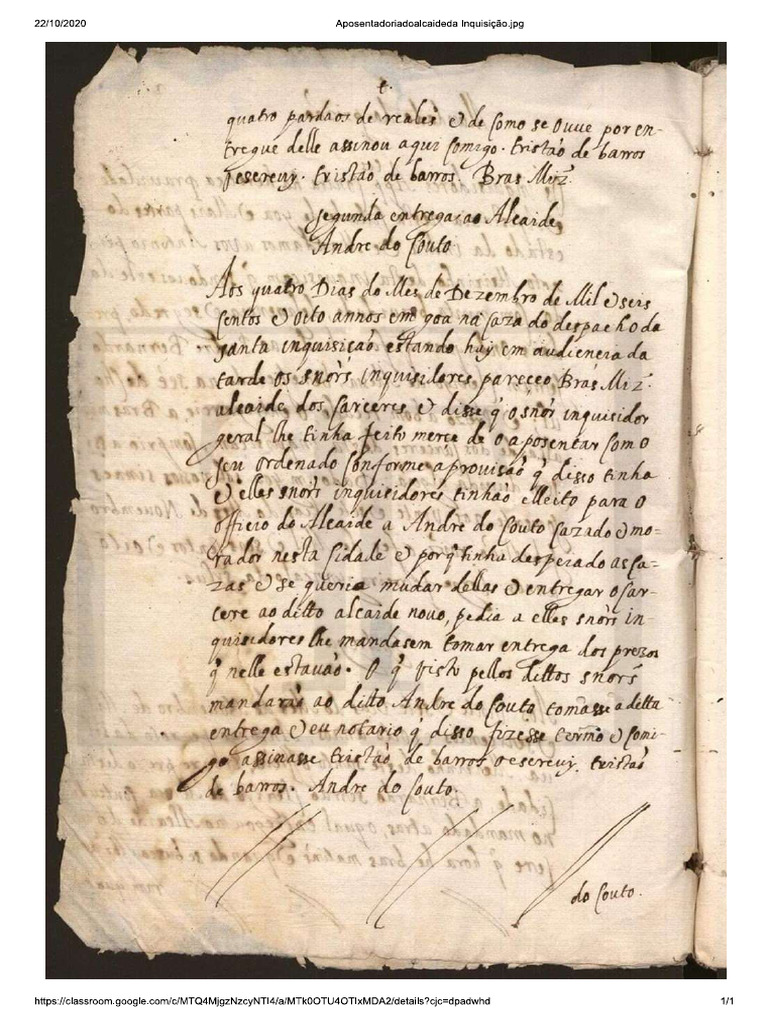 22/10/2020
Aposentadoriadoalcaideda Inquisição.jpg
t.
quatro pardaos de reales e de como se ouve por en-
tregue delle assinou aqui comigo. tristão de barros
o escrevy. tristão de barros. Bras Miz.
segunda entrega ao Alcaide
Andre do Couto.
Aos quatro Dias do Mes de Dezembro de Mil e seis
centos e oito annos em goa na caza do despacho da
santa inquisição estando hay em audiencia da
tarde os snors inquisidores pareceo Bras Miz.
alcaide dos carceres e disse q̃ o snor inquisidor
geral lhe tinha feito merce de o aposentar com o
seu ordenado conforme a provisão q̃ disso tinha
e elles snors inquisidores tinhão elleito para o
officio do Alcaide a Andre do Couto cazado e mo-
rador nesta cidade e porq̃ tinha despejado as ca-
zas e se queria mudar dellas e entregar o car-
cere ao ditto alcaide novo, pedia a elles snors in-
quisidores lhe mandasem tomar entrega dos prezos
q̃ nelle estavão. O q̃ visto pellos dittos snors
mandarão ao ditto Andre do Couto tomasse a ditta
entrega e eu notario q̃ disso fizesse termo e comi-
go assinasse tristão de barros o escrevy. tristão
de barros. Andre do Couto.
do Couto.
https://classroom.google.com/c/MTQ4MjgzNzcyNTI4/a/MTk0OTU4OTIxMDA2/details?cjc=dpadwhd
1/1